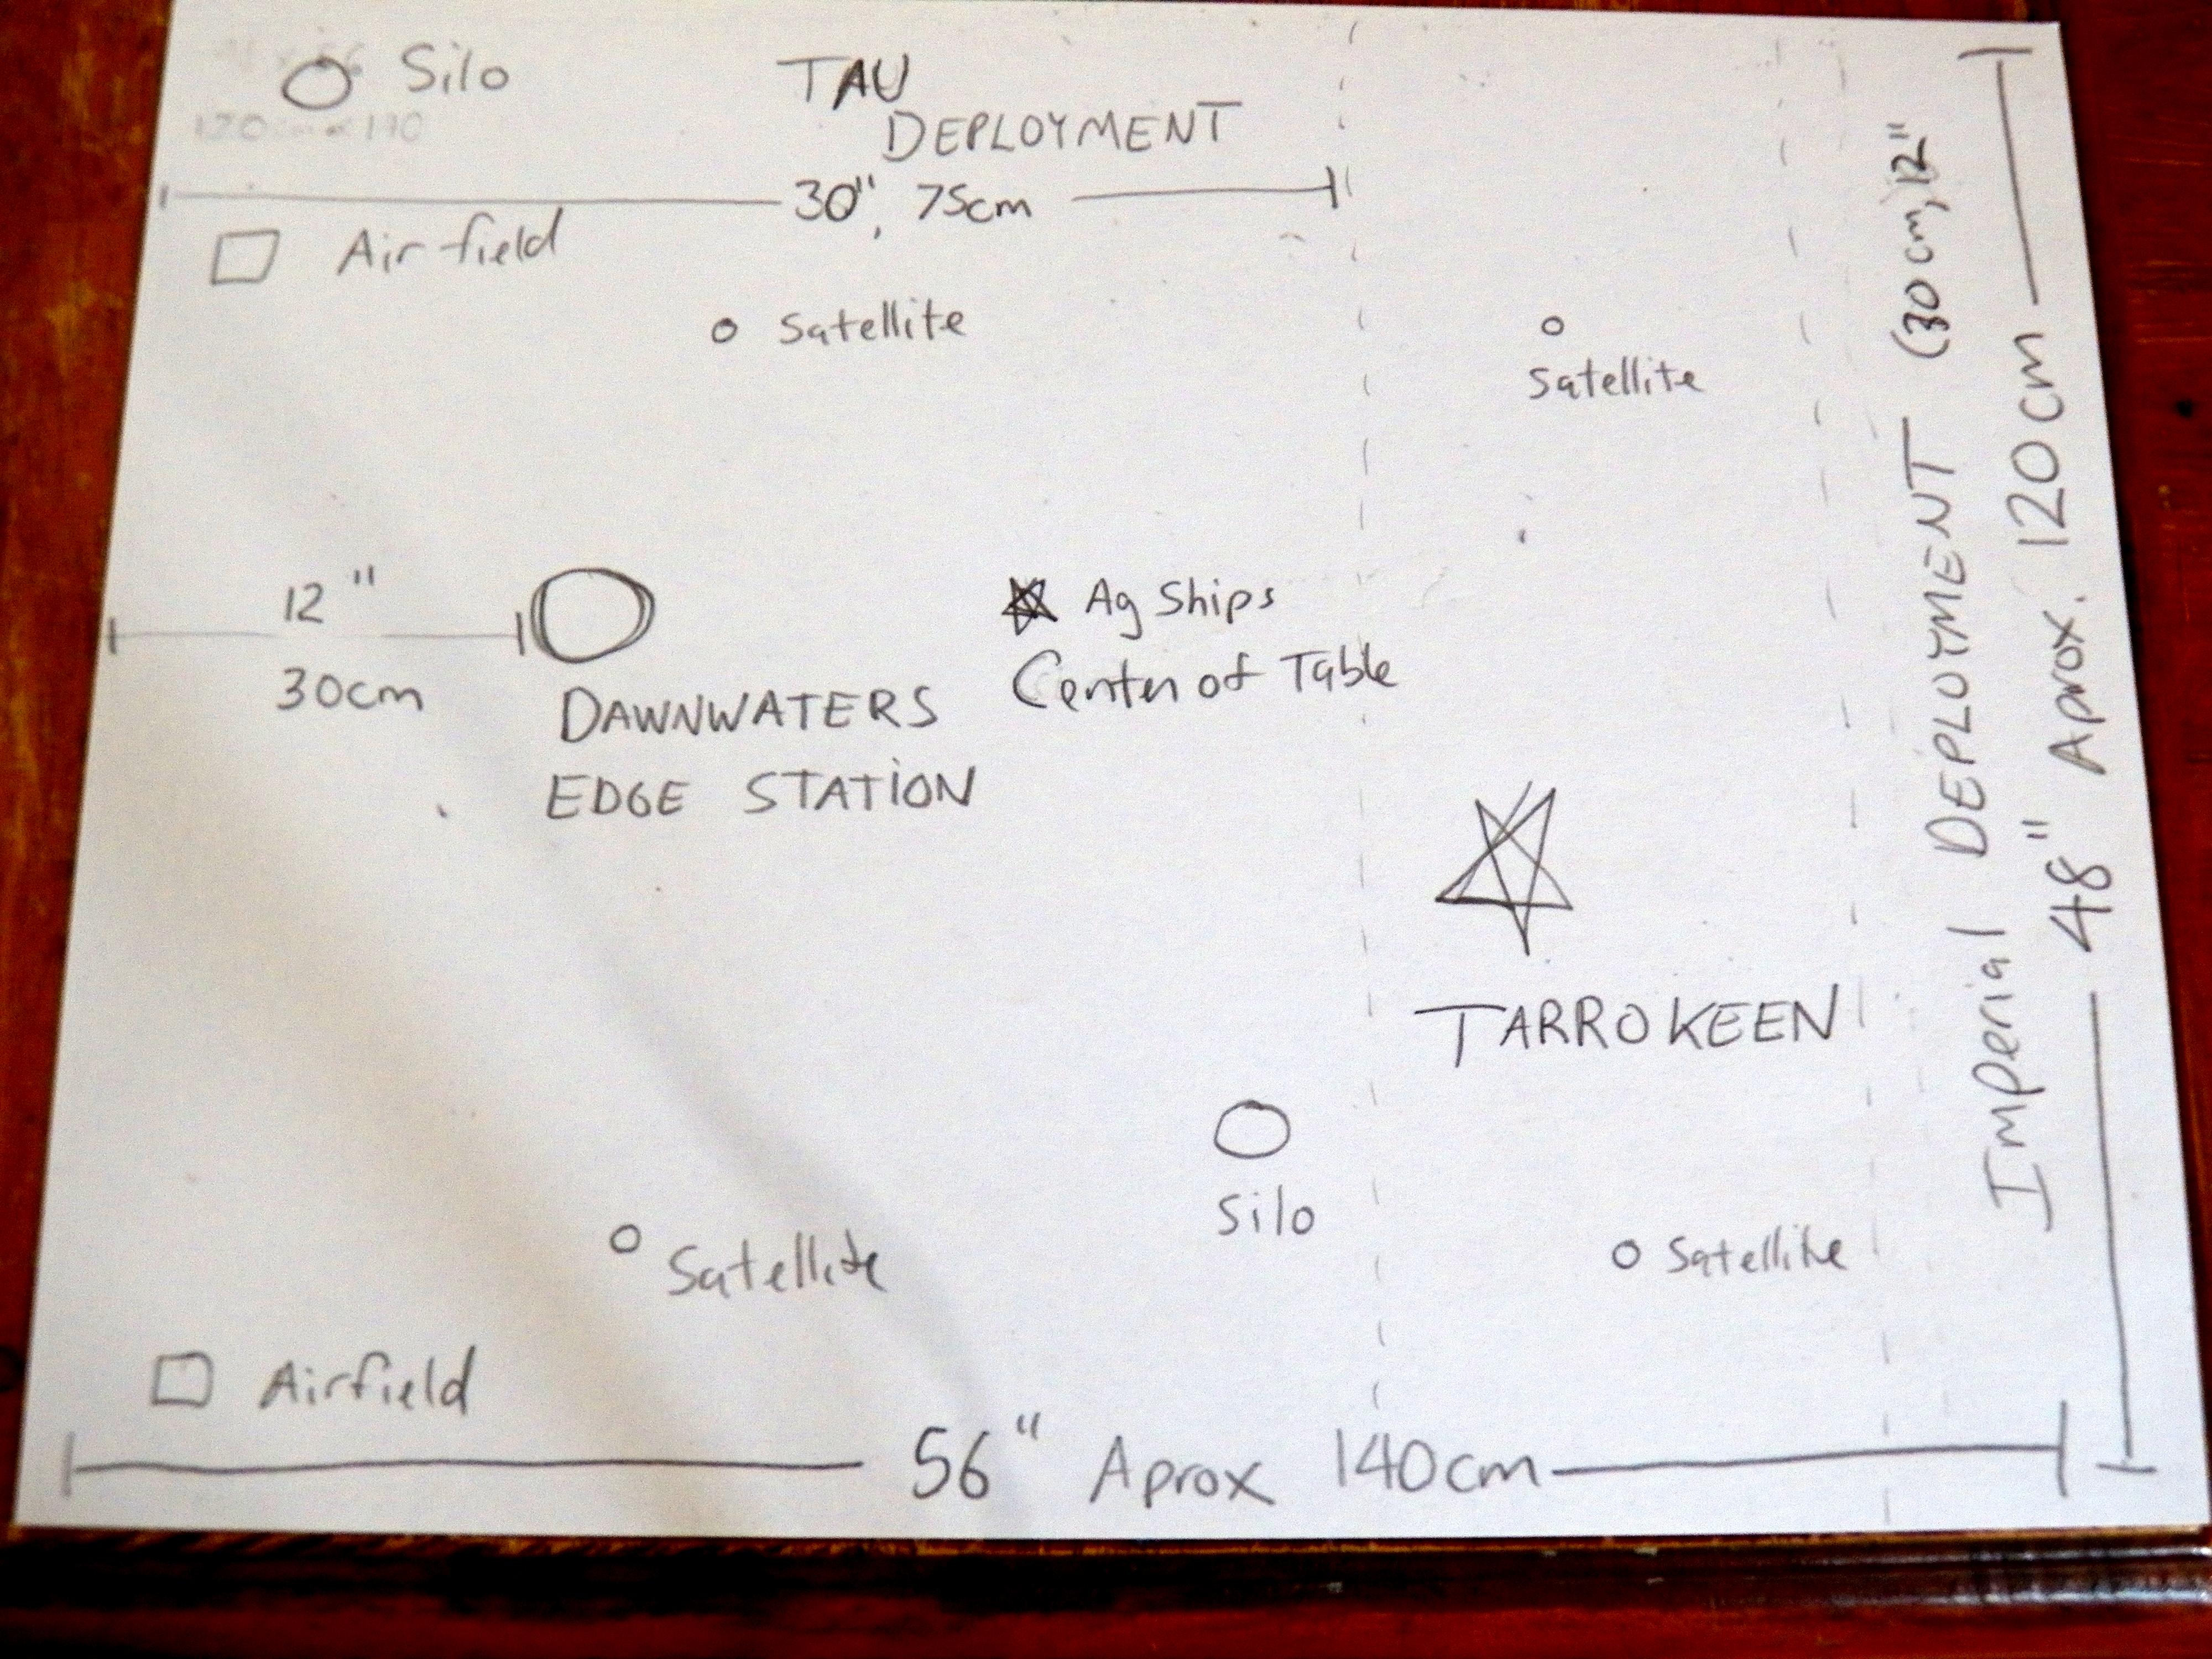 Silo
TAU
DEPLOYMENT
30", 75cm
Airfield
Satellite
Satellite
12"
30cm
DAWNWATERS
EDGE STATION
Ag Ships
Center of Table
TARROKEEN
Silo
Satellite
Satellite
Airfield
56" Aprox 140cm
Imperial DEPLOYMENT (30cm, 12"
48" Aprox. 120cm